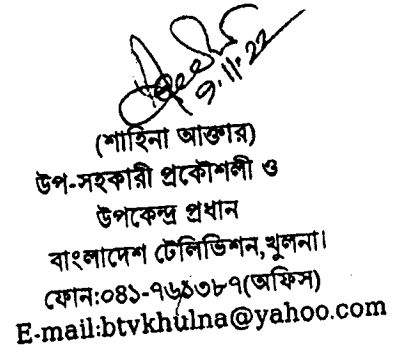 ৭.১১.২২
(শাহিনা আক্তার)
উপ-সহকারী প্রকৌশলী ও
উপকেন্দ্র প্রধান
বাংলাদেশ টেলিভিশন,খুলনা।
ফোন:০৪১-৭৬১৩৮৭(অফিস)
E-mail:btvkhulna@yahoo.com